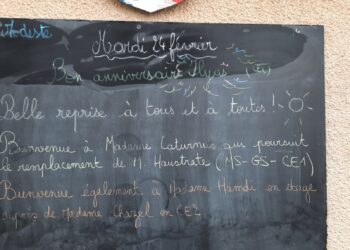 Modeste
Mardi 24 février
Bon anniversaire Ilyas
Belle reprise à tous et à toutes !
Bienvenue à Madame Laturnus qui poursuit
le remplacement de M. Haustrate (MS-GS-CE1)
Bienvenue également à Madame Hamdi en stage
auprès de Madame Chazel en CE2